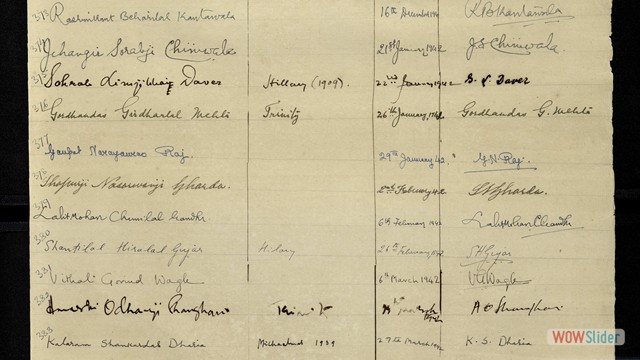 373 Rashmikant Beharilal Kantawala 16th December 1941 R B Kantawala
374 Jehangir Sorabji Chinwala 21st January, 1942 J S Chinwala.
375 Sohrab Daver Hillary (1909) 22nd January 1942 S. D. Daver
376 Gordhandas Girdharlal Mehta Trinity 26th January, 1942 Gordhandas G. Mehta
377
Ganpat Narayanrao Raj. 29th January 42. G. N. Raj.
Shapurji Nasarwanji Gharda. 2nd February 42 S N Gharda.
379
Lalit Mohan Chunilal Gandhi 6th February 1942
380
Shantilal Hiralal Gujar Hilary 26th February 1942 S H Gujar
381 Vithal Govind Wagle 6th March 1942 V G Wagle
Odhavji
383
Shankardas Dhalia Michaelmas 1939 27th March 1942 K. S. Dhalia
WOWSlider